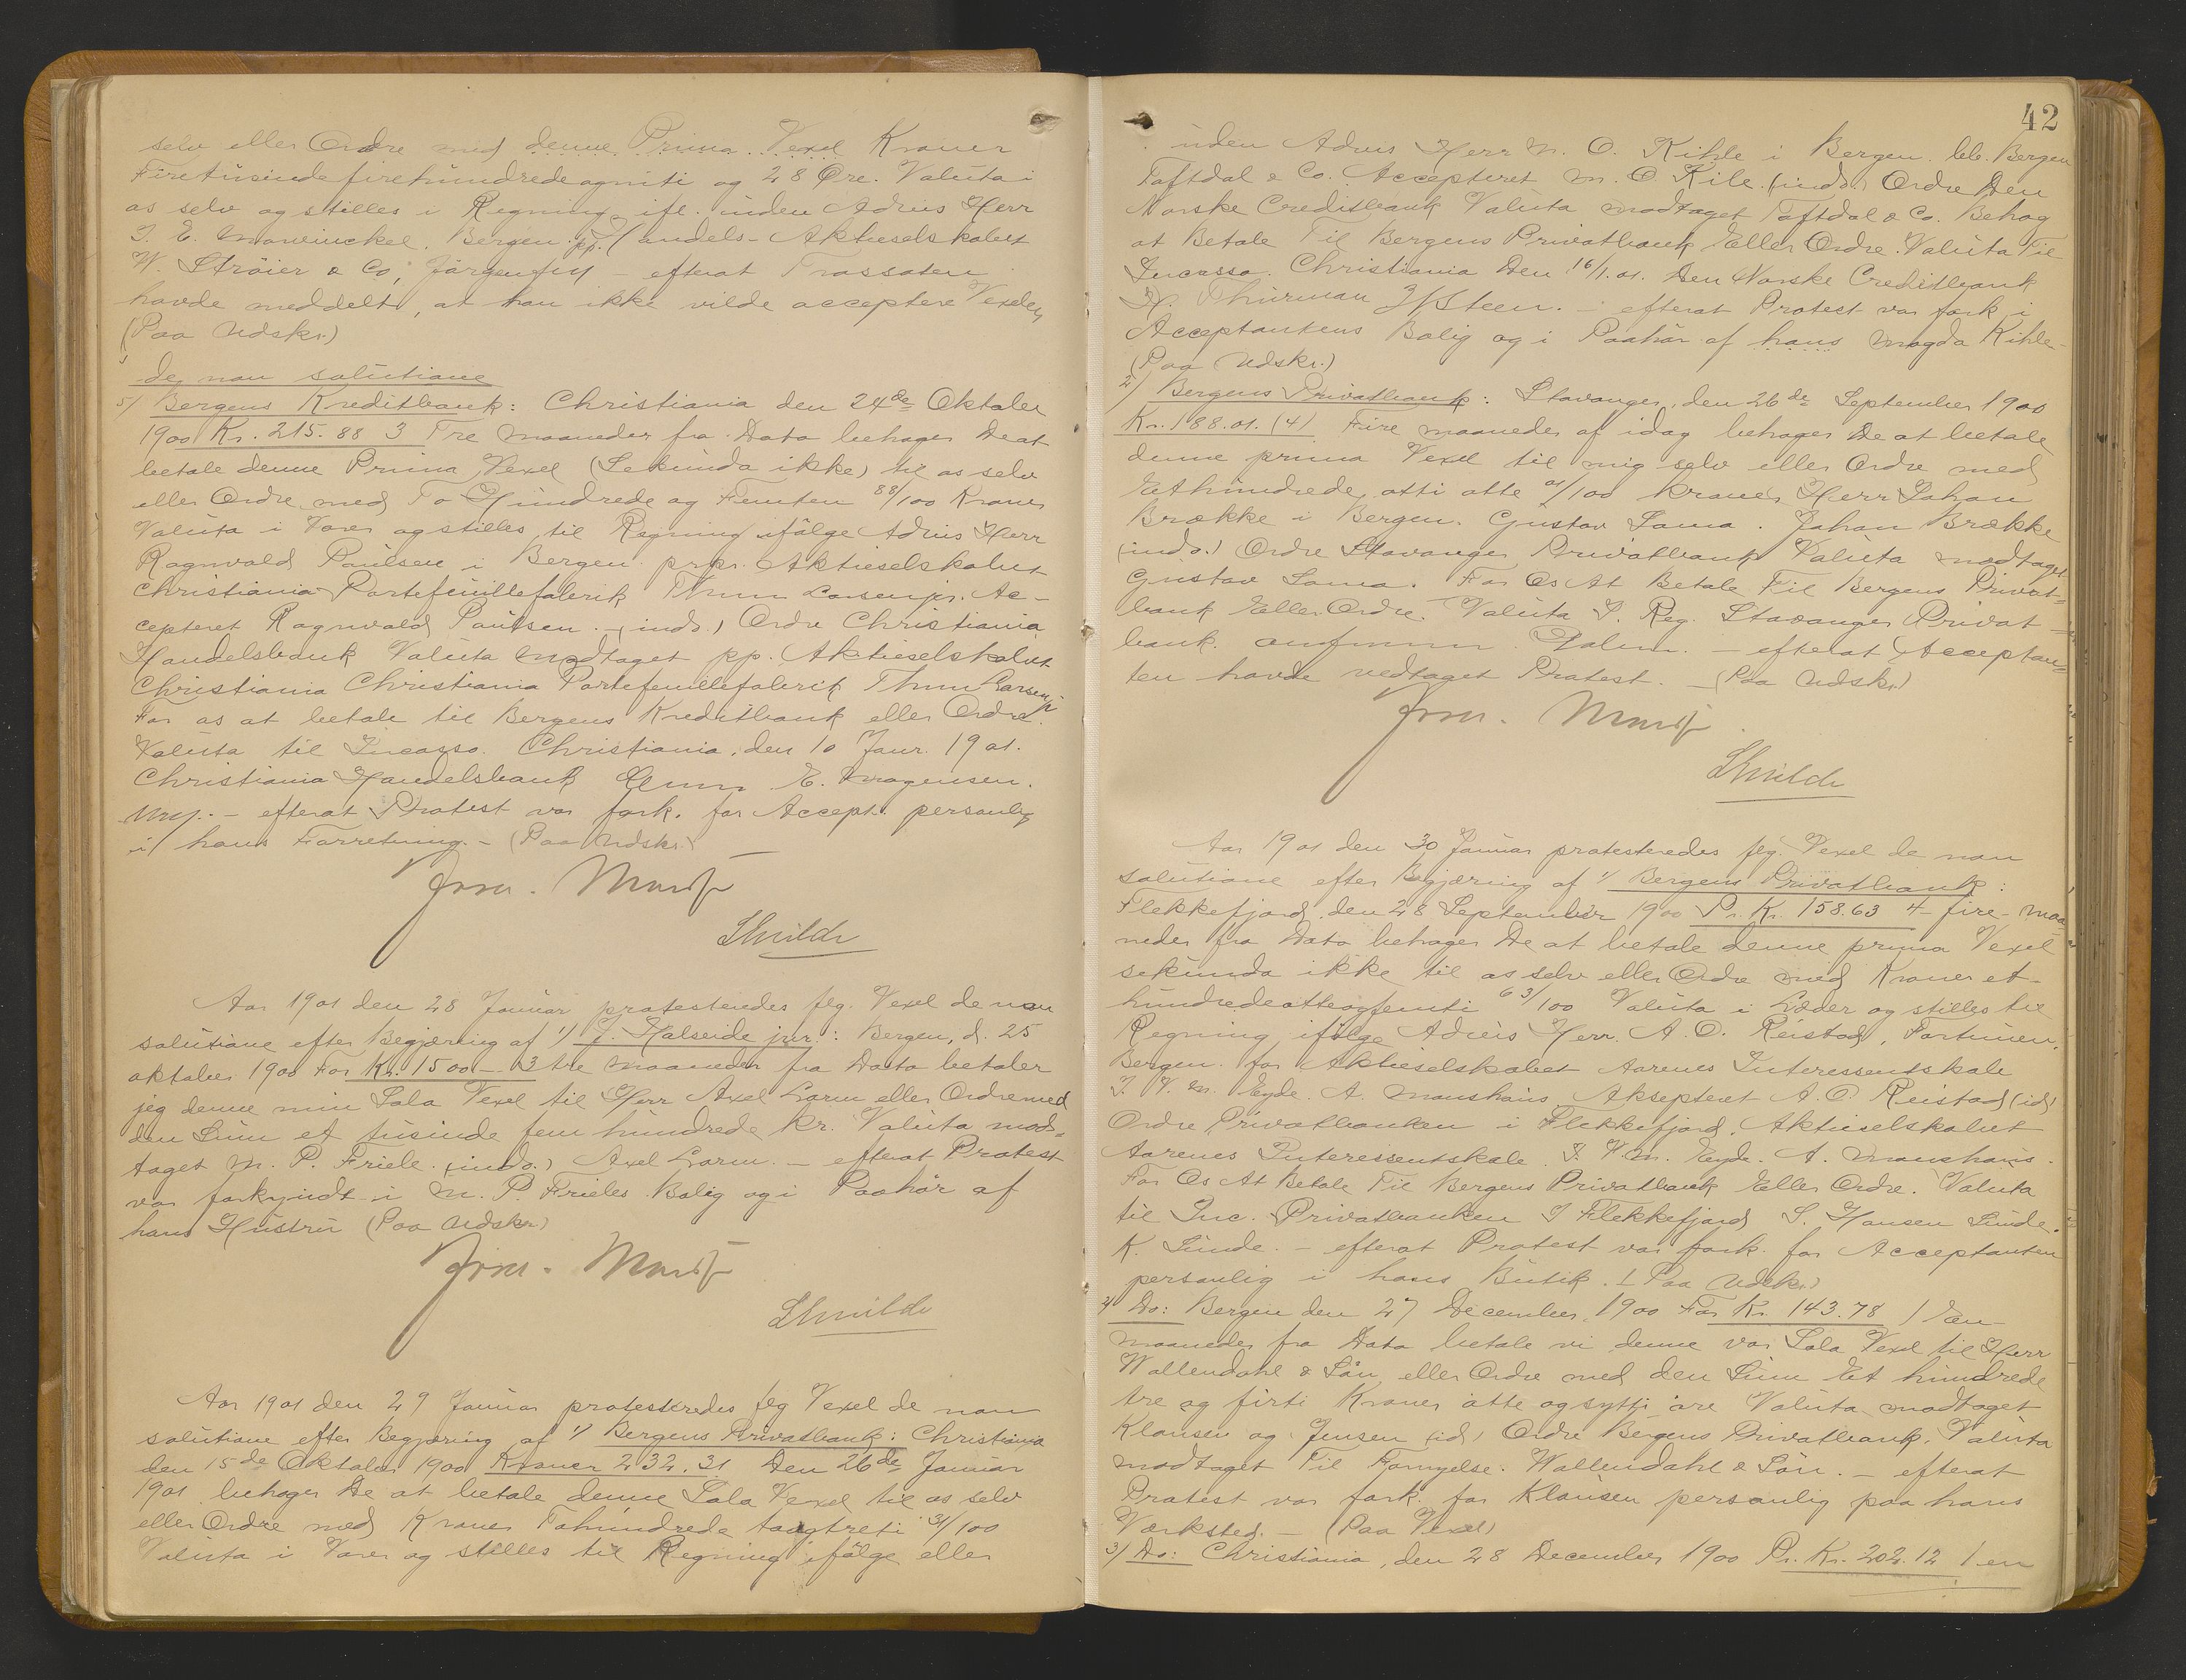 selv eller Ordre med denne Prima Vexel Kroner
Firetusindefirehundredeogniti og 28 Øre. Valuta i
os selv og stilles i Regning ifl. uden Advis Herr
J. E. Mowinckel. Bergen. pp. Handels-Aktieselskabet
W. Ströier & Co, - efterat Trassaten
havde meddelt, at han ikke vilde acceptere Vexelen
(Paa Udskr.)
de non solutione
5/ Bergens Kreditbank: Christiania den 24de Oktober
1900 Kr. 215.88 3 Tre Maaneder fra Dato behager De at
betale denne Prima Vexel (Sekunda ikke) til os selv
eller Ordre med To Hundrede og Femten 88/100 Kroner
Valuta i Varer og stilles til Regning ifölge Advis Herr
Ragnvald Paulsen i Bergen prpr. Aktieselskabet
Christiania Portefeuillefabrik Thum Larsen jr. Ac-
cepteret Ragnvald Paulsen. - (indo.) Ordre Christiania
Handelsbank Valuta Modtaget pp. Aktieselskabet
Christiania Christiania Portefeuillefabrik Thum Larsen jr
For os at betale til Bergens Kreditbank eller Ordre.
Valuta til Incasso. Christiania, den 10 Janr. 1901.
Christiania Handelsbank E. Mogensen.
- efterat Protest var fork. for Accept. personlig
i hans Forretning. - (Paa Udskr.)
Aar 1901 den 28 Januar protesteredes flg. Vexel de non
solutione efter Begjæring af 1/ J. Halseide jnr.: Bergen, d. 25
oktober 1900 For Kr. 1500 - 3 tre Maaneder fra Dato betaler
jeg denne min Sola Vexel til Herr Axel Lorm eller Ordre med
den Sum et tusinde fem hundrede Kr. Valuta mod-
taget M. P. Friele. (indo.) Axel Lorm. - efterat Protest
var forkyndt i M. P. Frieles Bolig og i Paahör af
hans Hustru (Paa Udskr.)
Aar 1901 den 29 Januar protesteredes flg Vexel de non
solutione efter Begjæring af 1/ Bergens Privatbank: Christiania
den 15de Oktober 1900 Kroner 232.31 Den 26de Januar
1901 behager De at betale denne Sola Vexel til os selv
eller Ordre med Kroner Tohundrede toogtreti 31/100
Valuta i Varer og stilles til Regning ifölge eller
42
uden Advis Herr M. O. Kihle i Bergen. bb. Bergen
Toftdal & Co. Accepteret M. O Kile. (indo.) Ordre Den
Norske Creditbank Valuta modtaget Toftdal & Co. Behag
at Betale Til Bergens Privatbank Eller Ordre. Valuta Til
Incasso. Christiania Den 16/1.01. Den Norske Creditbank
N. Thurman Steen. - efterat Protest var fork. i
Acceptantens Bolig og i Paahör af hans Magda Kihle -
(Paa Udskr.)
2/ Bergens Privatbank: Stavanger, den 26de September 1900
Kr. 188.01. (4) Fire maaneder af idag behager De at betale
denne prima Vexel til mig selv eller Ordre med
Ethundrede otti otte 01/100 Kroner Herr Johan
Brække i Bergen. Gustav Soma. Johan Brække
(indo.) Ordre Stavanger Privatbank Valuta modtaget
Gustav Soma. For Os At Betale Til Bergens Privat-
bank Eller Ordre. Valuta I. Reg. Stavanger Privat-
bank. - efterat Acceptan-
ten havde vedtaget Protest. - (Paa Udskr.)
Aar 1901 den 30 Januar protesteredes flg. Vexel de non
solutione efter Begjæring af 1/ Bergens Privatbank:
Flekkefjord, den 28 September 1900 Pr. Kr. 158.63 4 - fire - maa-
neder fra Dato behager De at betale denne prima Vexel
sekunda ikke til os selv eller Ordre med Kroner et-
hundredeotteogfemti 63/100 Valuta i Læder og stilles til
Regning ifölge Advis Herr. A. O. Reistad, Fortunen,
Bergen. for Aktieselskabet Aarenes Interessentskab
T. V. M. Eyde. A. Monshaus Aksepteret A. O. Reistad (id.)
Ordre Privatbanken i Flekkefjord. Aktieselskabet
Aarenes Interessentskab. T. V. M. Eyde. A. Monshaus.
For Os At Betale Til Bergens Privatbank Eller Ordre. Valuta
til Inc. Privatbanken I Flekkefjord S. Hansen Sunde.
K. Sunde. - efterat Protest var fork. for Acceptanten
personlig i hans Butik. - (Paa Udskr.)
2/ Do: Bergen den 27 December. 1900 For Kr. 143.78 1 Een
maaneder fra Dato betale vi denne vor Sola Vexel til Herr
Wallendahl & Sön, eller Ordre med den Sum Et hundrede
tre og firti Kroner otte og sytti öre Valuta modtaget
Klausen og Jensen (id) Ordre Bergens Privatbank, Valuta
modtaget Til Fornyelse. Wallendahl & Sön. - efterat
Protest var fork. for Klausen personlig paa hans
Værksted. - (Paa Vexel)
3/ Do: Christiania, den 28 December 1900 Pr. Kr. 202.12 1 en